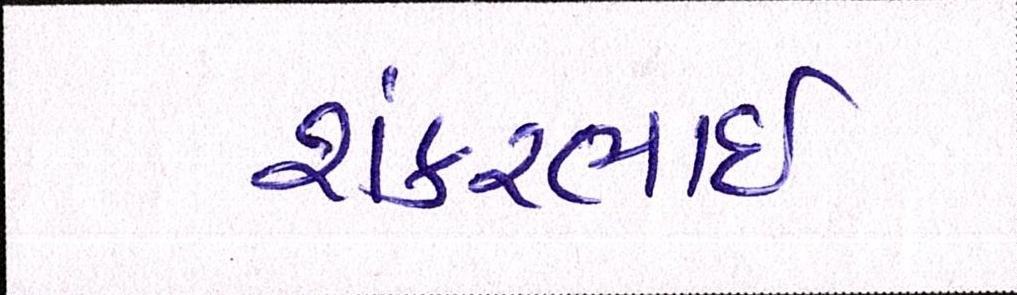 શંકરભાઈ